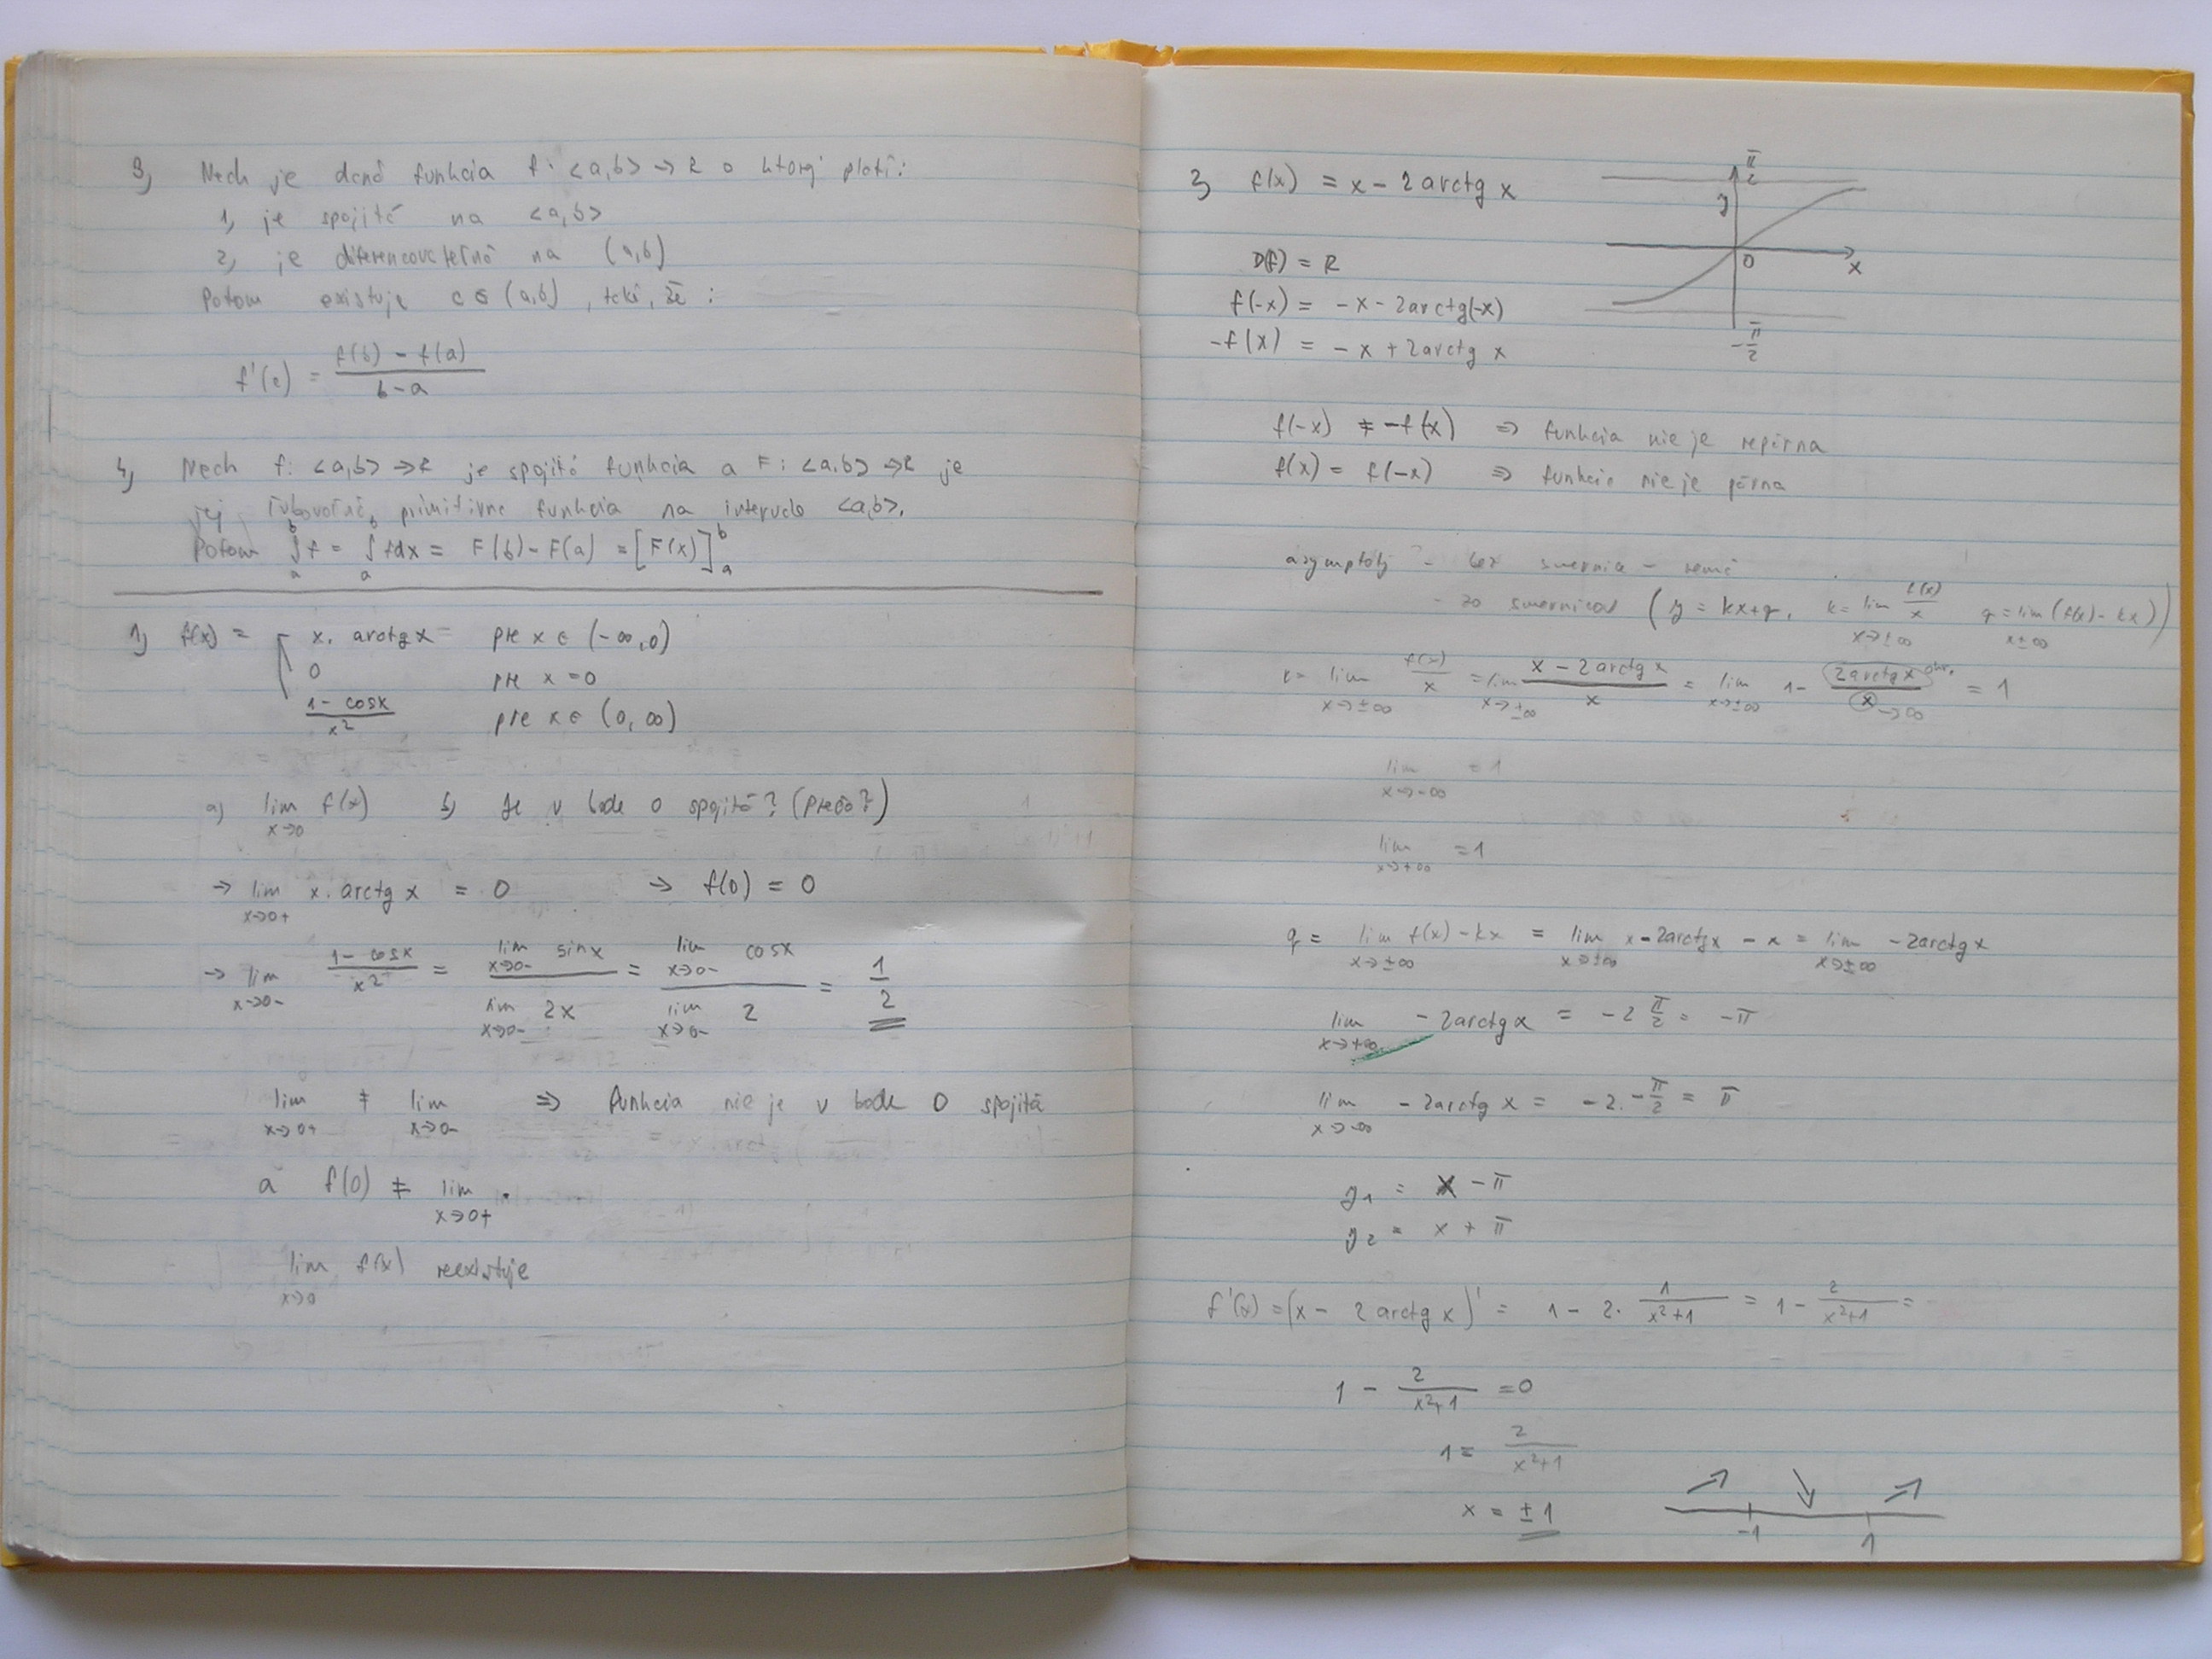 3, Nech je daná funkcia f: <a,b> → R o ktorej platí:
1, je spojitá na <a,b>
2, je diferencovateľná na (a,b)
Potom existuje c ∈ (a,b), také, že:
f'(c) = (f(b) - f(a)) / (b-a)
4, Nech f: <a,b> → R je spojitá funkcia a F: <a,b> → R je
jej ľubovoľná primitívna funkcia na intervale <a,b>.
Potom ∫_a^b f = ∫_a^b f dx = F(b) - F(a) = [F(x)]_a^b
1, f(x) = x. arctg x pre x ∈ (-∞,0)
0 pre x=0
(1-cosx)/x² pre x ∈ (0,∞)
a) lim x→0 f(x) b, Je v bode 0 spojitá? (prečo?)
→ lim x→0+ x. arctg x = 0 → f(0) = 0
→ lim x→0- (1-cosx)/x² = (lim x→0- sinx)/(lim x→0- 2x) = (lim x→0- cosx)/(lim x→0- 2) = 1/2
lim x→0+ ≠ lim x→0- ⇒ funkcia nie je v bode 0 spojitá
a f(0) ≠ lim x→0+
lim x→0 f(x) neexistuje
2, f(x) = x - 2 arctg x
π/2
y
0
x
-π/2
D(f) = R
f(-x) = -x - 2arctg(-x)
-f(x) = -x + 2arctg x
f(-x) ≠ -f(x) ⇒ funkcia nie je nepárna
f(x) = f(-x) ⇒ funkcia nie je párna
asymptoty - bez smernice - nemá
- so smernicou (y = kx+q, k = lim x→±∞ f(x)/x q = lim x±∞ (f(x) - kx))
k = lim x→±∞ f(x)/x = lim x→±∞ (x - 2arctg x)/x = lim x→±∞ 1 - (2arctg x)/x ohr. →∞ = 1
lim x→-∞ = 1
lim x→+∞ = 1
q = lim x→±∞ f(x) - kx = lim x→±∞ x - 2arctg x - x = lim x→±∞ -2arctg x
lim x→+∞ -2arctg x = -2 π/2 = -π
lim x→-∞ -2arctg x = -2. -π/2 = π
y₁ = x - π
y₂ = x + π
f'(x) = (x - 2 arctg x)' = 1 - 2. 1/(x²+1) = 1 - 2/(x²+1) =
1 - 2/(x²+1) = 0
1 = 2/(x²+1)
x = ±1
-1 1